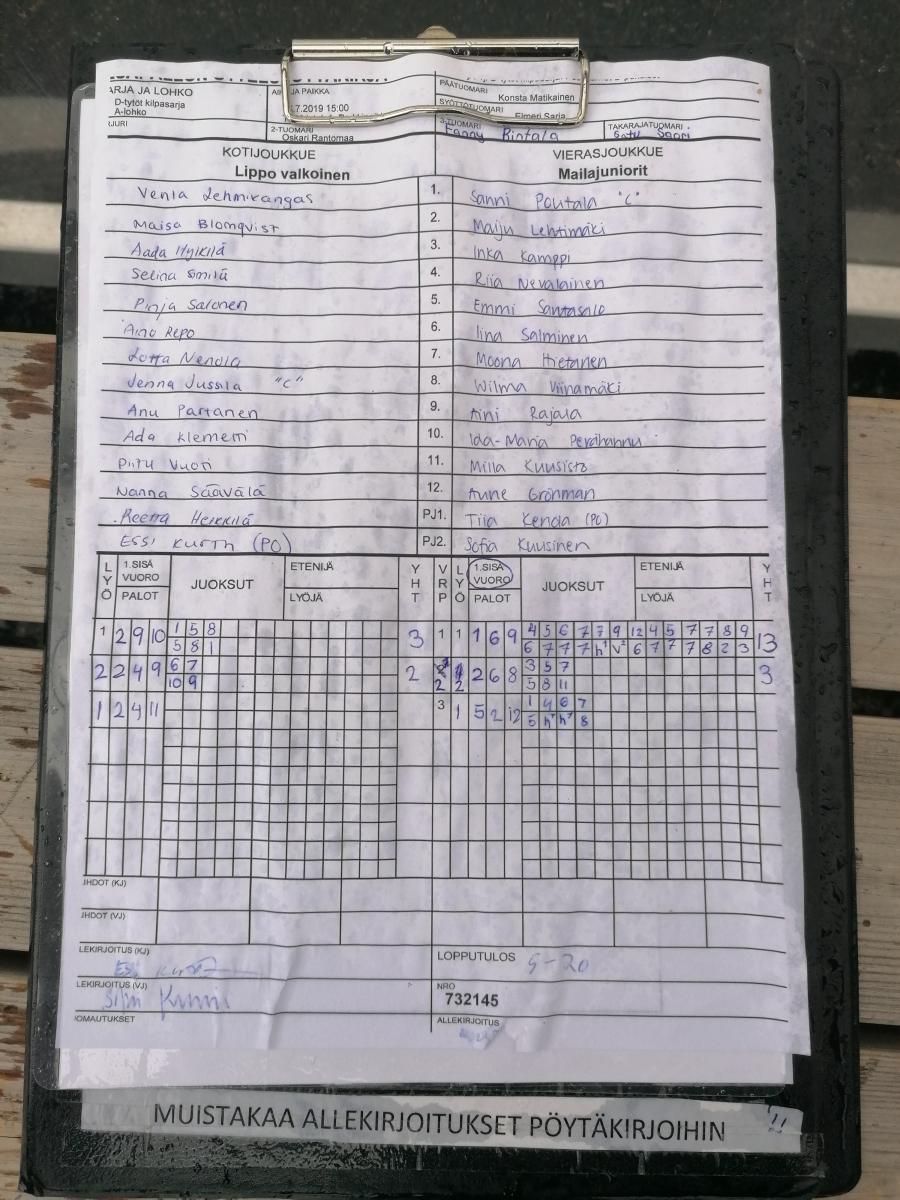 ARJA JA LOHKO
D-tytöt kilpasarja
A-lohko
JA PAIKKA
.7.2019 15:00
PÄÄTUOMARI
Konsta Matikainen
SYÖTTÖTUOMARI
Elmeri Sarja
2-TUOMARI
Oskari Rantomaa
3-TUOMARI
Fanny Rintala
TAKARAJATUOMARI
Satu Saari
KOTIJOUKKUE
VIERASJOUKKUE
Lippo valkoinen
Mailajuniorit
Venla Lehmikangas 1. Sanni Poutala "C"
Maisa Blomqvist 2. Maiju Lehtimäki
Aada 3. Inka Kamppi
Selina 4. Riia Nevalainen
Pinja Salonen 5. Emmi Santasalo
Aino Repo 6. Iina Salminen
Lotta Nenola 7. Moona Hietanen
Jenna Jussila "C" 8. Wilma Viinamäki
Anu Partanen 9. Aini Rajala
Ada Klemetti 10. Ida-Maria
Piitu Vuori 11. Milla Kuusisto
Nanna Säävälä 12. Anne Grönman
Reetta Heikkilä PJ1. Tiia Kenola (PO)
Essi Kurth (PO) PJ2. Sofia Kuusinen
LYÖ 1.SISÄ VUORO PALOT JUOKSUT ETENIJÄ LYÖJÄ YHT VRP LYÖ 1.SISÄ VUORO PALOT JUOKSUT ETENIJÄ LYÖJÄ YHT
1 2 9 10 1 5 8 3 1 1 1 6 9 4 5 6 7 7 9 12 4 5 7 7 8 9 13
5 8 1 6 7 7 7 h¹ v² 6 7 7 7 8 2 3
2 2 4 9 6 7 2 2 2 2 6 8 3 5 7 3
10 9 5 8 11
1 2 4 11 3 1 5 2 12 1 4 6 7
5 h¹ h¹ 8
JHDOT (KJ)
JHDOT (VJ)
LEKIRJOITUS (KJ)
LOPPUTULOS 5-20
LEKIRJOITUS (VJ)
NRO
732145
OMAUTUKSET
ALLEKIRJOITUS
MUISTAKAA ALLEKIRJOITUKSET PÖYTÄKIRJOIHIN !!